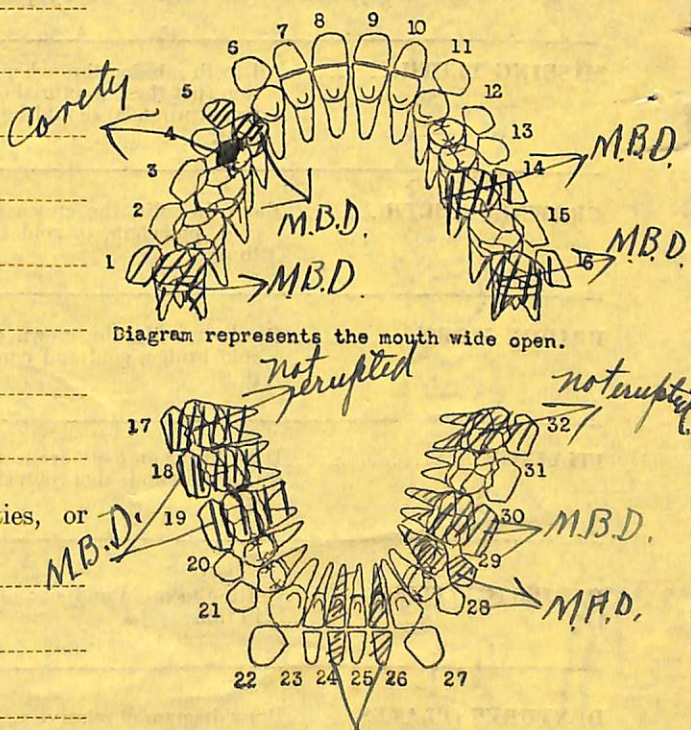 7 8 9 10
6 11
5 12
Cavity
4 13
M.B.D.
3 14
2 M.B.D. 15
M.B.D.
1 M.B.D. 16
Diagram represents the mouth wide open.
not erupted
not erupted
17 32
18 31
ties, or
M.B.D. 19 30 M.B.D.
20 29
21 28 M.A.D.
22 23 24 25 26 27